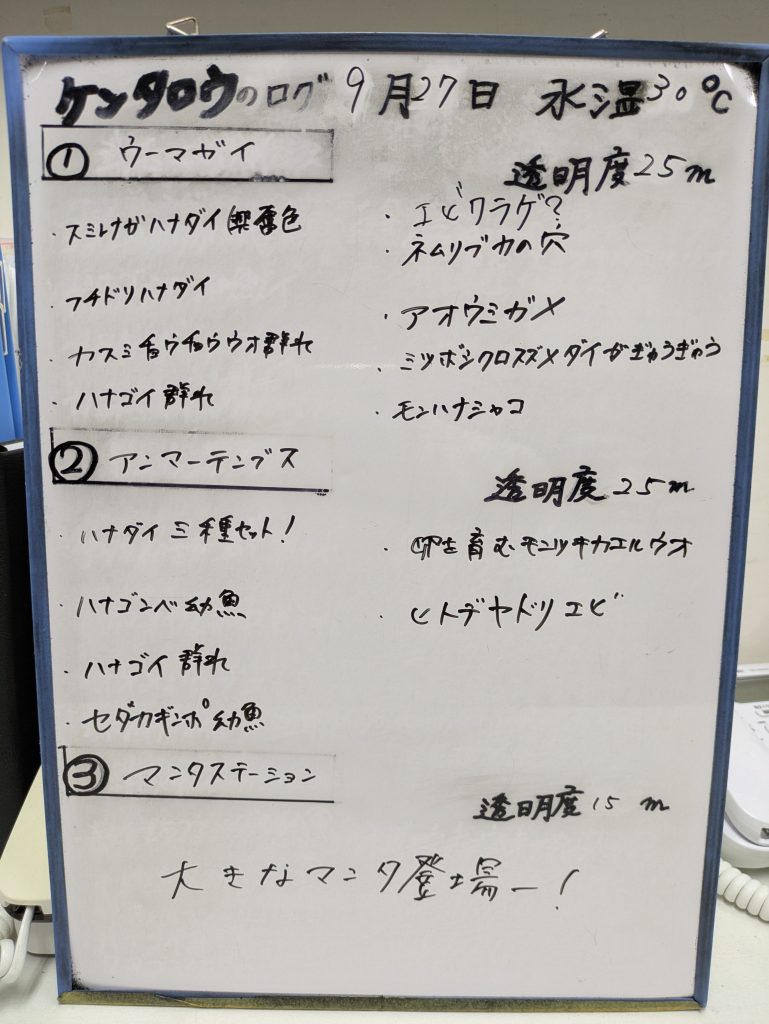 ケンタロウのログ 9月27日 水温30℃
① ウーマガイ
透明度25m
・スミレナガハナダイ 色
・フチドリハナダイ
・カスミチョウチョウウオ群れ
・ハナゴイ群れ
・エビクラゲ?
・ネムリブカの穴
・アオウミガメ
・ミツボシクロスズメダイがぎゅうぎゅう
・モンハナシャコ
② アンマーテングス
透明度25m
・ハナダイ三種セット!
・ハナゴンベ幼魚
・ハナゴイ群れ
・セダカギンポ幼魚
・卵を育むモンツキカエルウオ
・ヒトデヤドリエビ
③ マンタステーション
透明度15m
大きなマンタ登場ー!